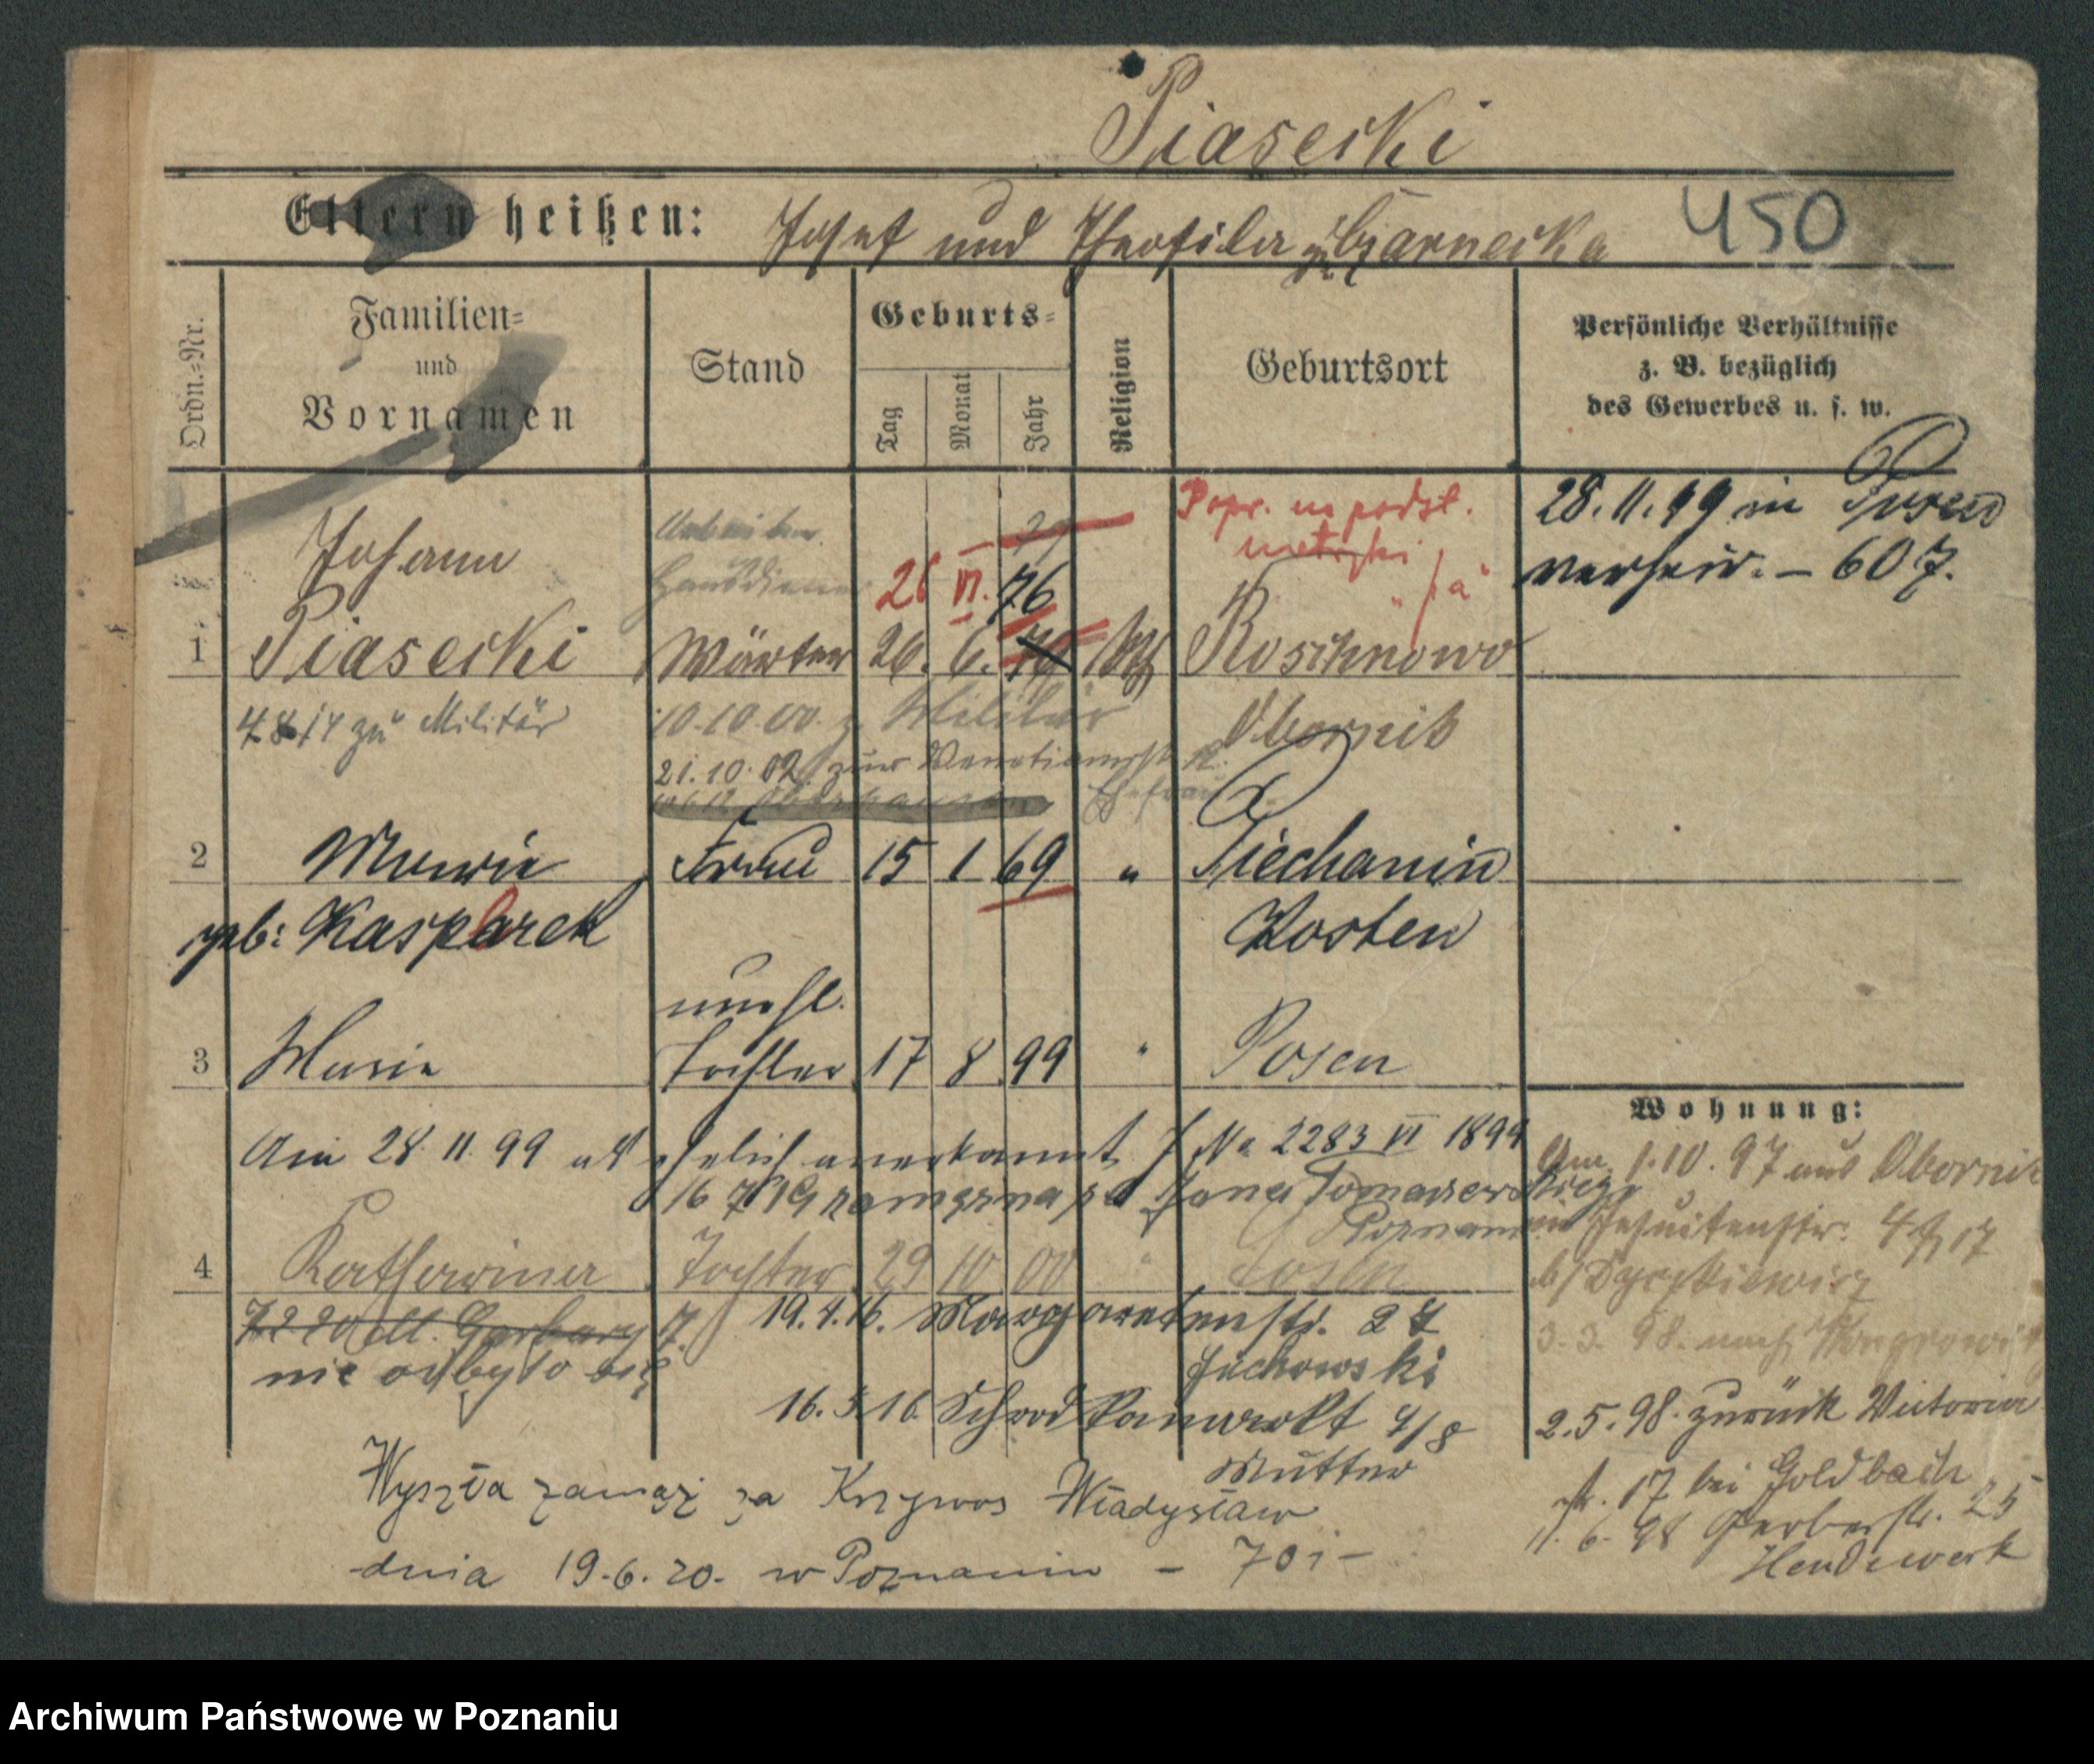 Piasecki
Eltern heißen: Josef und Theofila geb Czarnecka 450
Ordn.=Nr.
Familien=
und
Vornamen
Stand
Geburts=
Tag
Monat
Jahr
Religion
Geburtsort
Persönliche Verhältnisse
z. B. bezüglich
des Gewerbes u. s. w.
Popr. na podst.
metryki
28.11.99 in Posen
verheir. – 607.
Johann
Arbeiter
Hausdiener
26 VI. 76
1 Piasecki Wärter 26. 6. kth Roschnowo
4 8 14 zu Militär
10.10.00. z. Militär
Obornik
21.10.02 zur
Ehefrau
2 Marie Frau 15 1 69 " Piechanin
geb: Kasparek Kosten
unehl.
3 Marie Tochter 17 8 99 " Posen
Wohnung:
Am 28.11.99 als ehelich anerkannt J No 2283 VI 1899
16 7 19 zamężna za Jana Tomaszewskiego
Poznan
4 Katharina Tochter 29 10 00 " Posen
7 2 20 Garbary 17.
nie odbyło się
19.4.16. Margaretenstr. 24
Juchowski
16.5.16 Schrodkamarkt 4/8
Mutter
Am 1.10.97 aus Obornik
Jesuitenstr. 4
3.3.98. nach Wongrowitz
2.5.98. zurück Victoria
str. 17 bei Goldbach
11.6.98 Gerberstr. 25
Hendewerk
Wyszła zamąż za Krzywos Władysław
dnia 19.6.20. w Poznaniu – 701 –
Archiwum Państwowe w Poznaniu